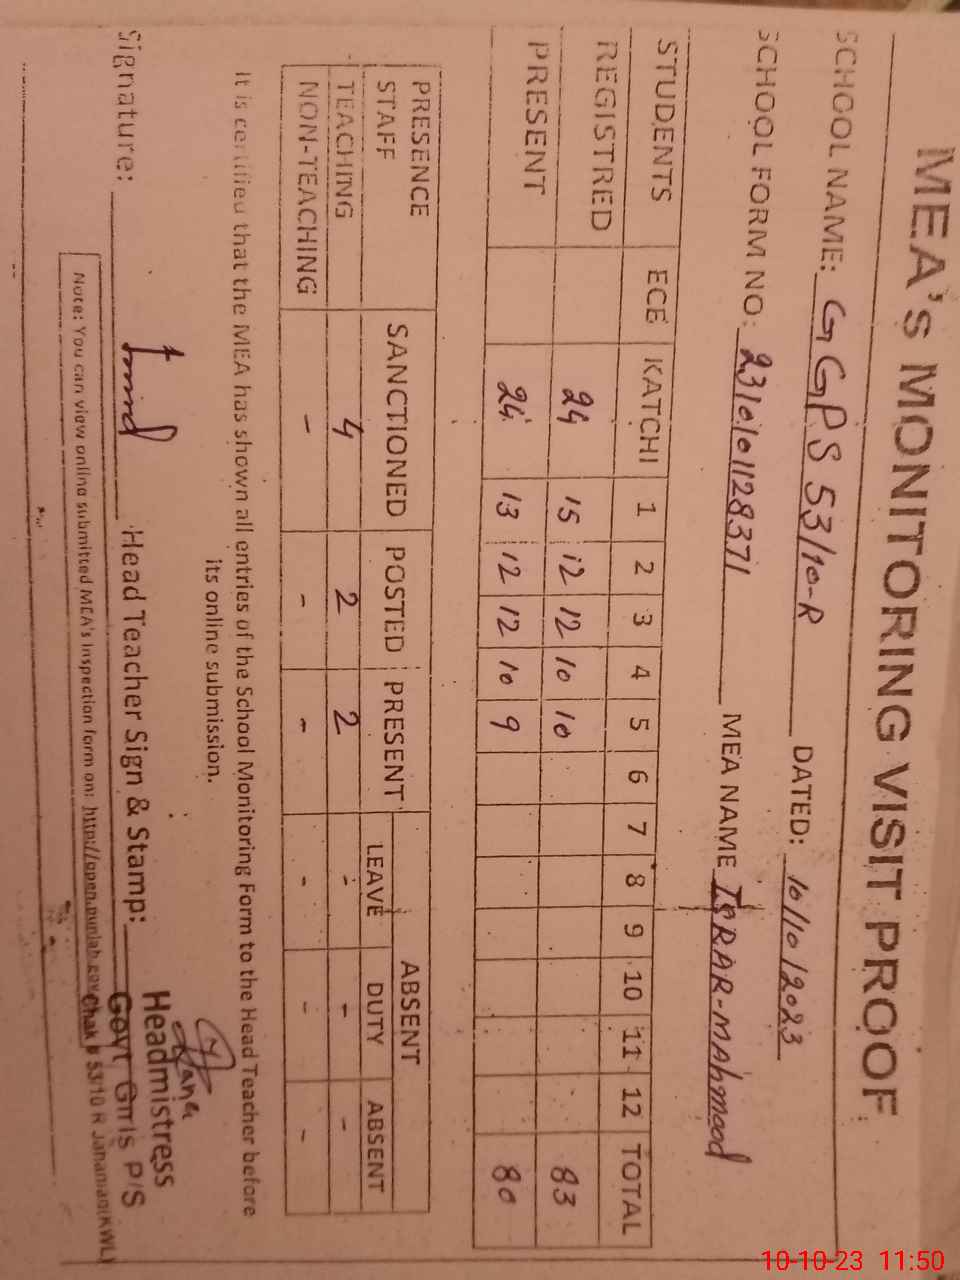 MEA's MONITORING VISIT PROOF
SCHOOL NAME: GGPS 53/10-R DATED: 10/10/2023
SCHOOL FORM NO: 2310101128371 MEA NAME ISRAR-MAhmood
STUDENTS ECE KATCHI 1 2 3 4 5 6 7 8 9 10 11 12 TOTAL
REGISTRED 24 15 12 12 10 10 83
PRESENT 24 13 12 12 10 9 80
PRESENCE SANCTIONED POSTED PRESENT ABSENT
STAFF LEAVE DUTY ABSENT
TEACHING 4 2 2 - - -
NON-TEACHING - - - - - -
It is certified that the MEA has shown all entries of the School Monitoring Form to the Head Teacher before
its online submission.
Signature: Head Teacher Sign & Stamp:
Headmistress
Govt Girls P/S
Chak # 53/10 R Jahanian(KWL)
Note: You can view online submitted MEA's Inspection form on: http://open.punjab.gov
10-10-23 11:50